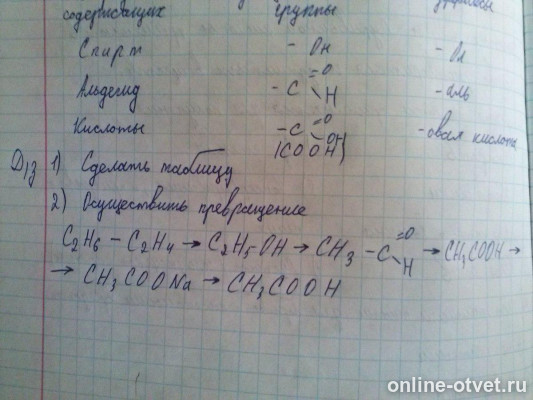 содержащих группы
Спирт - OH - ол
Альдегид - C =O H - аль
Кислоты - C =O OH - овая кислота
(COOH)
Д/з 1) Сделать таблицу
2) Осуществить превращение
C2H6 – C2H4 → C2H5OH → CH3 - C =O H → CH3COOH →
→ CH3COONa → CH3COOH
online-otvet.ru